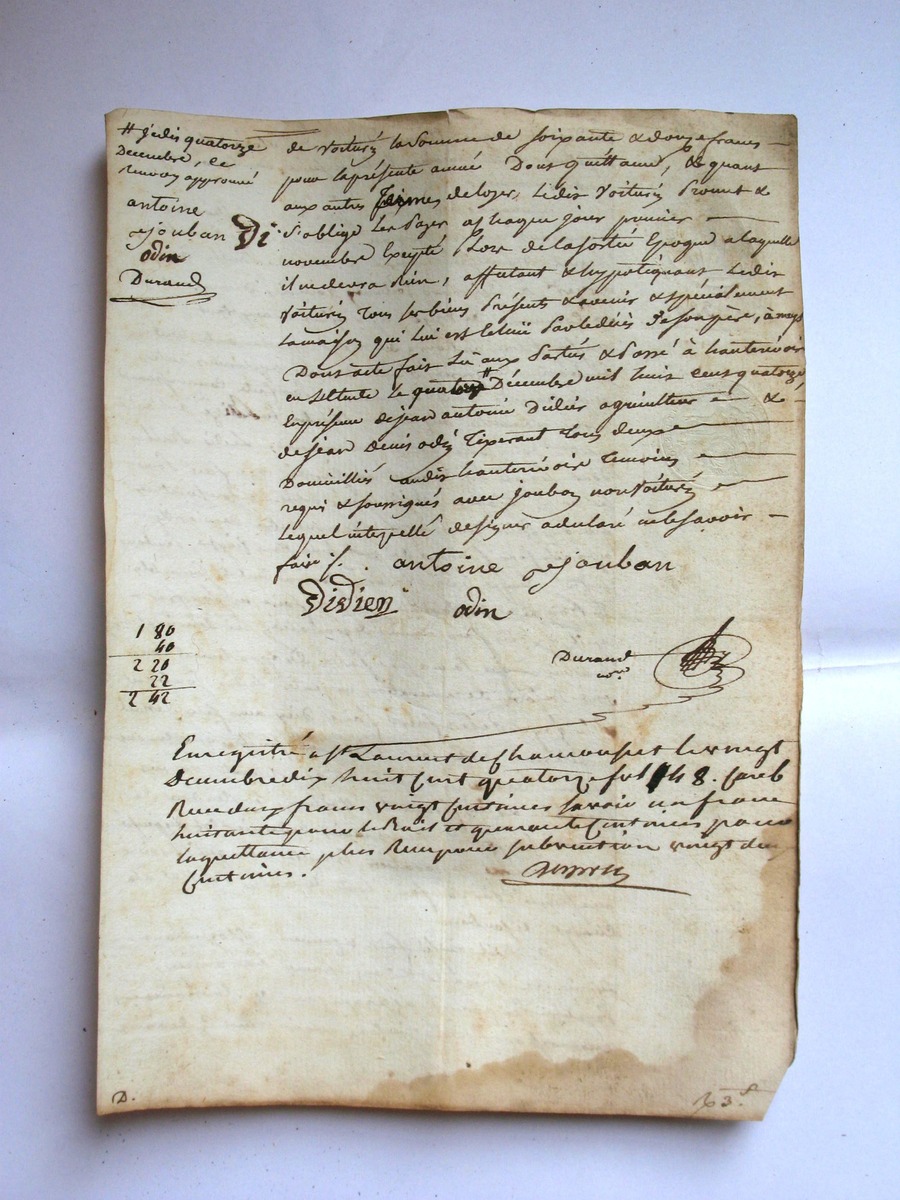 # je dis quatorze
Décembre, ce
renvoy approuvé
antoine
jouban Di
odin
Durand
de voiturin la Somme de soixante & douze francs —
pour la présente année Dont quittance, & quant
aux autres termes de loyer, Ledit voiturin Promet &
s'oblige Les Payer a chaque jour premier —
novembre Excepté Lors de la sortie Epoque a laquelle
il ne devra Rien, affectant & hypotéquant Ledit
voiturin Tous ses biens Présents & avenir & spécialement
la maison qui Lui est de son père,
Dont acte fait Lu aux Partis & Passé à hauterivoire
en L'étude Le quatorze # Décembre mil huit cent quatorze
En présence de jean antoine Didier agriculteur — & —
de jean Denis odin Tixerant Tous deux —
Domiciliés audit hauterivoire Temoins —
requi & soussignés avec jouban non voiturin —
Lequel interpellé de signer a declaré ne le savoir —
faire /. antoine jouban
Didien odin
1 80
40
2 20
22
2 42
Durand
no.re
Enregistré a St Laurent de Chamousset le vingt
Decembre dix huit Cent quatorze fol 148.
Recu deux francs vingt Centimes savoir un franc
huitante pour le Bail et quarante Centimes pour
la quittance plus Recu pour subvention vingt deux
Centimes.
D.
3.